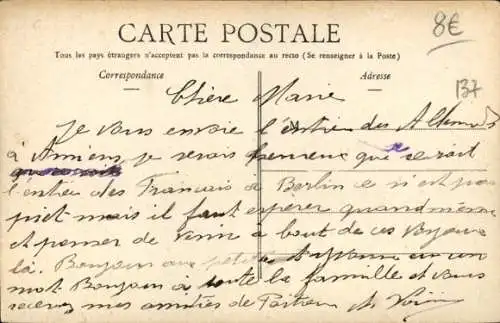 8€
CARTE POSTALE
137
Tous les pays étrangers n'acceptent pas la correspondance au recto (Se renseigner à la Poste)
Correspondance
Adresse
Chère Marie
Je vous envoie l'entrée des Allemands
à Amiens je serais heureux que se serait
l'entrée des Francais a Berlin ce n'est pas
mais il faut esperer quand même
et penser de venir a bout de ces
là. Bonjour aux petites et un
mot. Bonjour à toute la famille et vous
recevez mes amitiés de